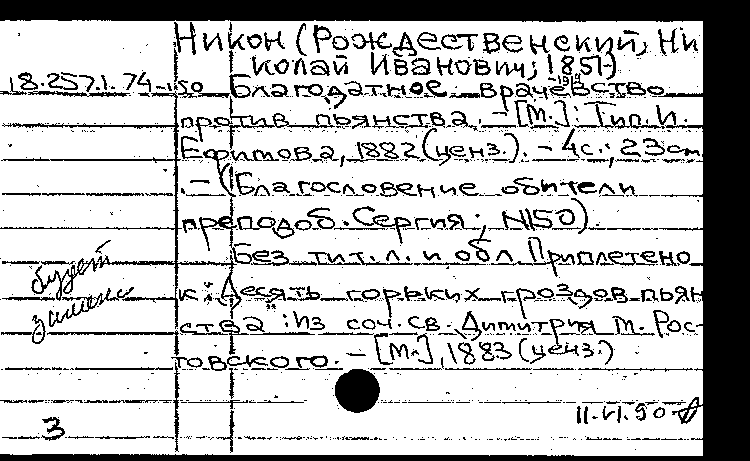 Никон (Рождественский, Ни
колай Иванович; 1851-
1919
18.257.1.74-150 Благодатное врачевство
против пьянства. - [М.]: Тип. И.
Ефимова, 1882 (ценз.). - 4с.; 23см
. - (Благословение обители
преподоб. Сергия; N150)
Без тит. л. и обл. Приплетено
к: Десять горьких гроздов пьян
ства: Из соч. св. Димитрия м. Рос-
товского. - [М.], 1883 (ценз.)
будет
11.VI.90
3